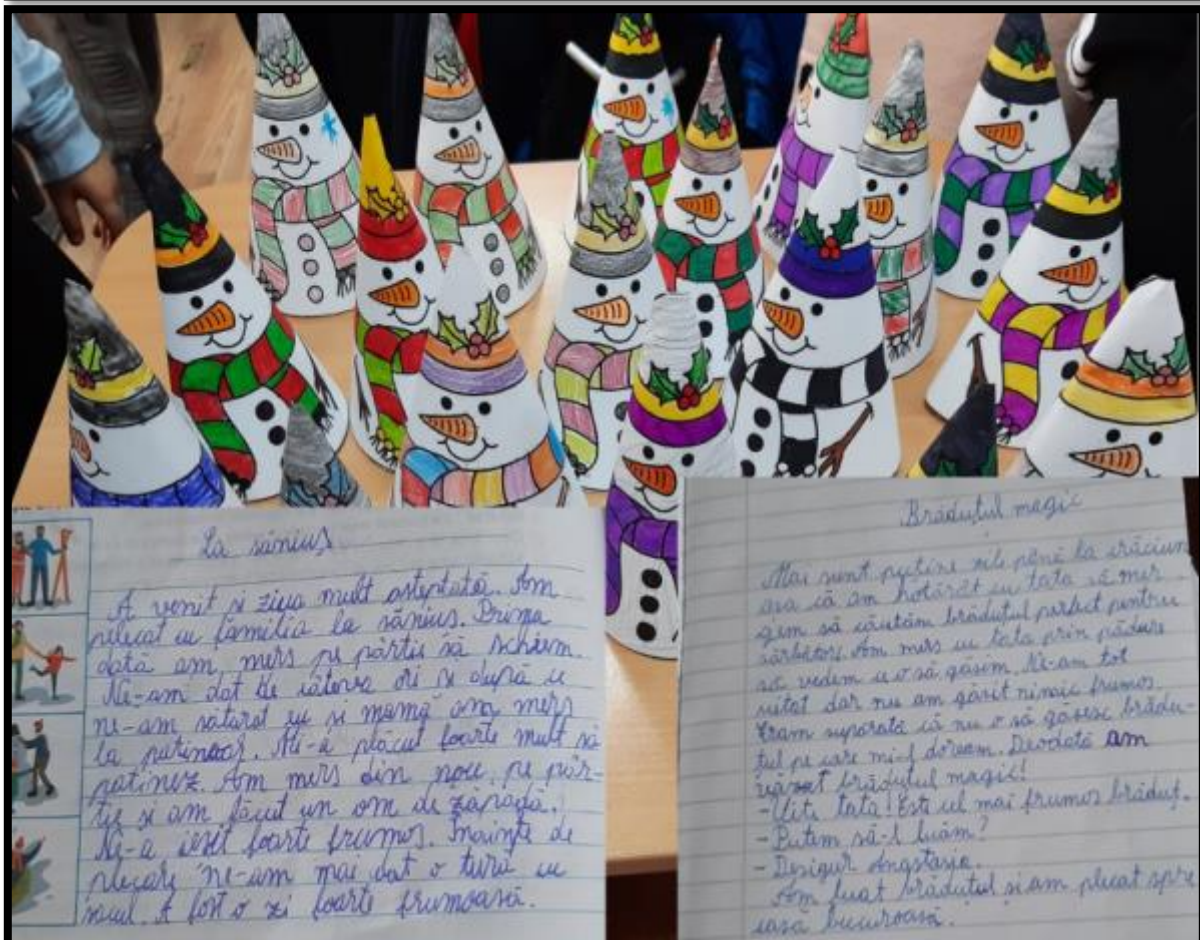 La săniuș
A venit și ziua mult așteptată. Am
plecat cu familia la săniuș. Prima
dată am mers pe pârtie să schiem.
Ne-am dat de câteva ori și după ce
ne-am săturat eu și mama am mers
la patinoar. Mi-a plăcut foarte mult să
patinez. Am mers din nou pe pâr-
tie și am făcut un om de zăpadă.
Ne-a ieșit foarte frumos. Înainte de
plecare ne-am mai dat o tură cu
A fost o zi foarte frumoasă.
Brăduțul magic
Mai sunt puține zile până la crăciun
așa că am hotărât cu tata să mer-
gem să căutăm brăduțul perfect pentru
sărbători. Am mers cu tata prin pădure
să vedem ce o să găsim. Ne-am tot
uitat dar nu am găsit nimic frumos.
Eram supărată că nu o să găsesc brădu-
țul pe care mi-l doream. Deodată am
văzut brăduțul magic!
-Uite tata! Este cel mai frumos brăduț.
-Putem să-l luăm?
-Desigur Anastasia.
Am luat brăduțul și am plecat spre
casă bucuroasă.